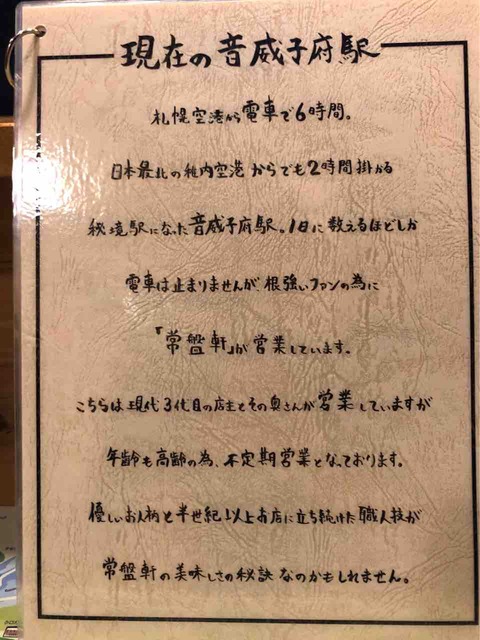 現在の音威子府駅
札幌空港から電車で6時間。
日本最北の稚内空港からでも2時間掛かる
秘境駅になった音威子府駅。1日に数えるほどしか
電車は止まりませんが、根強いファンの為に
「常盤軒」が営業しています。
こちらは現代3代目の店主とその奥さんが営業していますが
年齢も高齢の為、不定期営業となっております。
優しいお人柄と半世紀以上お店に立ち続けた職人技が
常盤軒の美味しさの秘訣なのかもしれません。